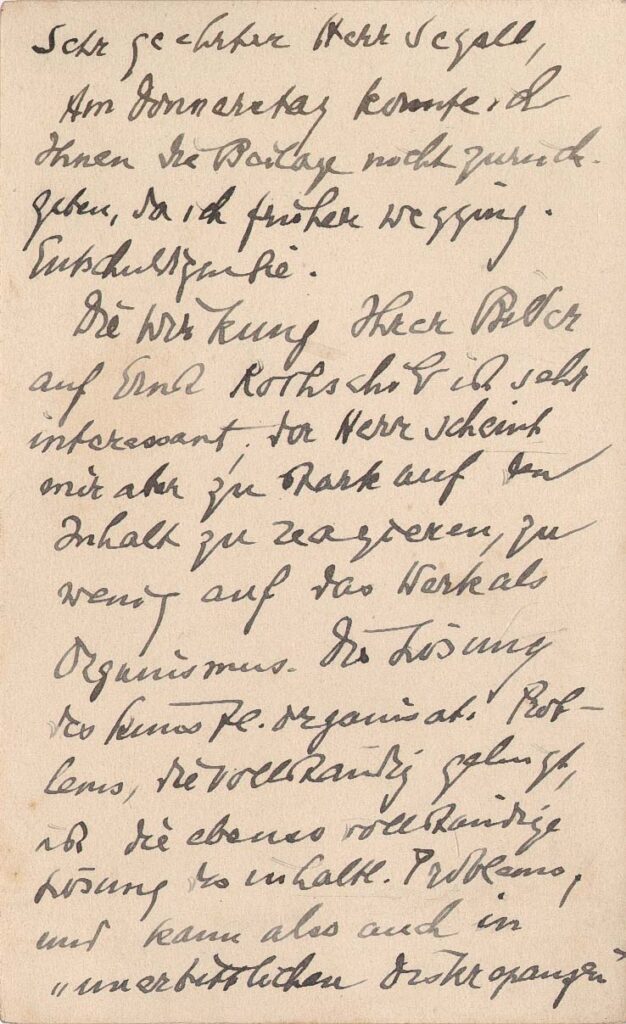 Sehr geehrter Herr Segall,
Am Donnerstag konnte ich
Ihnen die Beilage nicht zurück-
geben, da ich früher wegging.
Entschuldigen Sie.
Die Wirkung Ihrer Bilder
auf Ernst Rothschild ist sehr
interessant, der Herr scheint
mir aber zu stark auf den
Inhalt zu reagieren, zu
wenig auf das Werk als
Organismus. Die Lösung
des künstl. organisat. Prob-
lems, die vollständig gelingt,
ist die ebenso vollständige
Lösung des inhaltl. Problems,
und kann also auch in
„unerbittlichen Diskrepanzen"